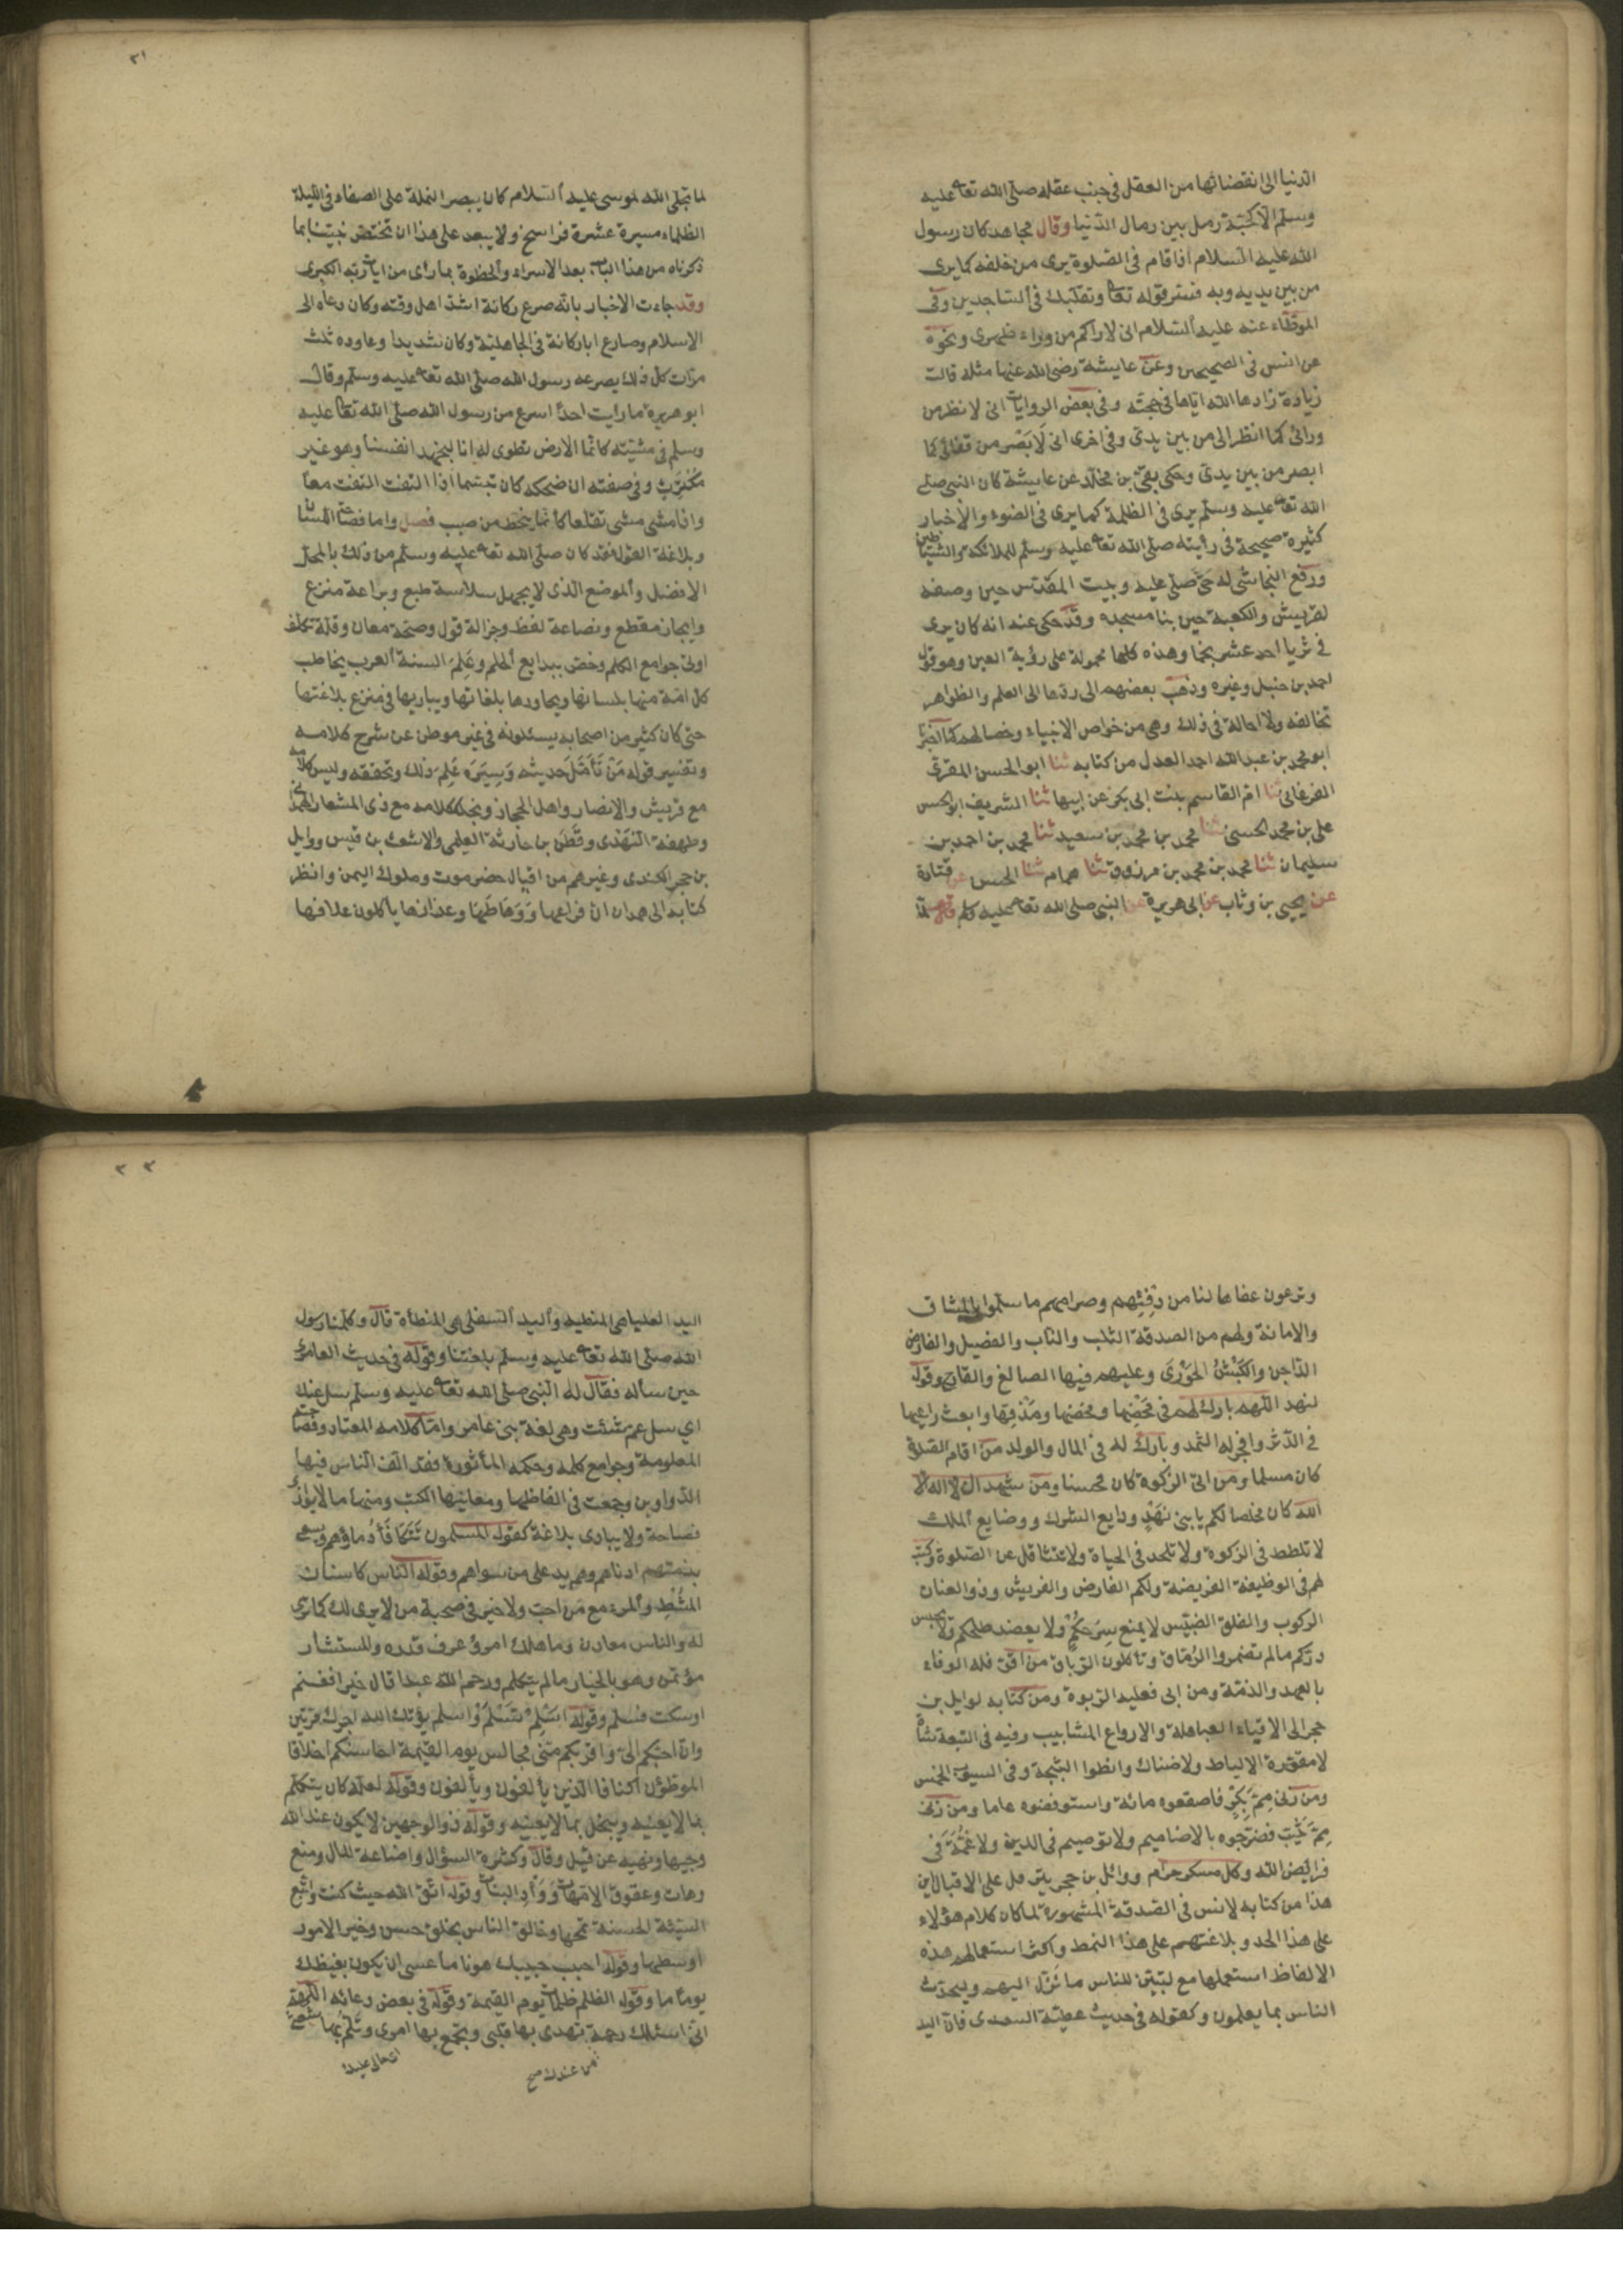 الدنيا الى انقضائها من العقل فى جنب عقله صلى الله تعا عليه
وسلم الا كحبة رمل بين رمال الدنيا وقال مجاهد كان رسول
الله عليه السلام اذا قام فى الصلوة يرى من خلفه كما يرى
من بين يديه وبه فسر قوله تعا وتقلبك فى الساجدين وفى
الموطاء عنه عليه السلام انى لاراكم من وراء ظهرى ونحوه
عن انس فى الصحيحين وعن عايشة رضى الله عنها مثله قالت
زيادة زادها الله اياها فى حجته وفى بعض الروايات انى لانظر من
ورائى كما انظر الى من بين يدى وفى اخرى انى لَاَبصُر من قفائى كما
ابصر من بين يدى وحكى بقى بن مخلد عن عايشة كان النبى صلى
الله تعا عليه وسلم يرى فى الظلمة كما يرى فى الضوء والاخبار
كثيرة صحيحة فى رأيته صلى الله تعا عليه وسلم للملائكة والشياطين
ورفع النجاشى له حتى صلى عليه وبيت المقدس حين وصفه
لقريش والكعبة حين بنا مسجده وقد حكى عنه انه كان يرى
فى ثريا احد عشر نجما وهذه كلها محمولة على رؤية العين وهو قول
احمد بن حنبل وغيره وذهب بعضهم الى ردها الى العلم والظواهر
تخالفه ولا احالة فى ذلك وهى من خواص الانبياء وخصالهم كما اخبرنا
ابو محمد بن عبد الله احمد العدل من كتابه ثنا ابو الحسن المقرى
الفرغانى ثنا ام القاسم بنت ابى بكر عن ابيها ثنا الشريف ابو الحسن
على بن محمد الحسنى ثنا محمد بن محمد بن سعيد ثنا محمد بن احمد بن
سليمان ثنا محمد بن محمد بن مرزوق ثنا همام ثنا الحسن عن قتادة
عن يحيى بن وثاب عن ابى هريرة عن النبى صلى الله تعا عليه وسلم قال لما
٣١
لما تجلى الله لموسى عليه السلام كان يبصر النملة على الصفاء فى الليلة
الظلماء مسيرة عشرة فراسخ ولا يبعد على هذا ان تختص نبينا بما
ذكرناه من هذا الباب بعد الاسراء والحظوة بما رأى من ايات ربه الكبرى
وقد جاءت الاخبار بانه صرع ركانة اشد اهل وقته وكان دعاه الى
الاسلام وصارع ابا ركانة فى الجاهلية وكان شديدا وعاوده ثلث
مرات كل ذلك يصرعه رسول الله صلى الله تعا عليه وسلم وقال
ابو هريرة ما رايت احدا اسرع من رسول الله صلى الله تعا عليه
وسلم فى مشيته كانما الارض تطوى له انا لنجهد انفسنا وهو غير
مكترث وفى صفته ان ضحكه كان تبسما اذا التفت التفت معا
واذا مشى مشى تقلعا كانما ينحط من صبب فصل واما فصاحة اللسان
وبلاغة القول فقد كان صلى الله تعا عليه وسلم من ذلك بالمحل
الافضل والموضع الذى لا يجهل سلاسة طبع وبراعة منزع
وايجاز مقطع ونصاعة لفظ وجزالة قول وصحة معان وقلة تكلف
اوتى جوامع الكلم وخص ببدايع الحلم وعَلِمَ السنة العرب يخاطب
كل امة منها بلسانها ويحاورها بلغاتها ويباريها فى منزع بلاغتها
حتى كان كثير من اصحابه يسئلونه فى غير موطن عن شرح كلامه
وتفسير قوله مَنْ تَأَمَّلَ حديثه وَسِيَرَه عَلِمَ ذلك وتحققه وليس كلامه
مع قريش والانصار واهل الحجاز ونجد ككلامه مع ذى المشعار الهمدانى
وطهفة النهدى وقطن بن حارثة العليمى والاشعث بن قيس ووايل
بن حجر الكندى وغيرهم من اقيال حضرموت وملوك اليمن وانظر
كتابه الى همدان ان فراعها وَوَهَاطَهَا وعذازها ياكلون علافها
وترعون عفاها لنا من دفئهم وصرامهم ما سلموا بالميثاق
والامانة ولهم من الصدقة الثلب والناب والفصيل والفارض
الداجن والكَبْشُ الحَوْرِىّ وعليهم فيها الصالغ والقارح وقوله
لنهد اللهم بارك لهم فى محضها ومخضها ومذقها وابعث راعيها
فى الدثر وافجر له الثمد وبارك له فى المال والولد من اقام الصلوة
كان مسلما ومن اتى الزكوة كان محسنا ومن شهد ان لا اله الا
الله كان مخلصا لكم يا بنى نَهْدٍ ودايع الشرك ووضايع الملك
لا تلطط فى الزكوة ولا تلحد فى الحياة ولا تتثاقل عن الصلوة وكتب
لهم فى الوظيفة الفريضة ولكم الفارض والفريش وذو العنان
الركوب والفلو الضبيس لا يمنع سرحكم ولا يعضد طلحكم ولا يحبس
دركم ما لم تضمروا الرماق وتأكلون الرباق من اقر فله الوفاء
بالعهد والذمة ومن ابى فعليه الربوة ومن كتابه لوايل بن
حجر الى الاقياء العباهلة والارواع المشابيب وفيه فى التيعة شاة
لا مقورة الالياط ولا ضناك وانطوا الثبجة وفى السيوب الخمس
ومن زنى مِمْ بَِكْرٍ فاصقعوه مائة واستوفضوه عاما ومن زنى
مِمْ ثَيّب فضرجوه بالاضاميم ولا توصيم فى الدين ولا غُمَّةَ فى
فرايض الله وكل مسكر حرام ووائل بن حجر يترفل على الاقيال اين
هذا من كتابه لانس فى الصدقة المشهورة لما كان كلام هؤلاء
على هذا الحد وبلاغتهم على هذا النمط واكثر استعمالهم هذه
الالفاظ استعملها مع ليبين للناس ما نزل اليهم وليحدث
الناس بما يعلمون وكقوله فى حديث عطية السعدى فان اليد
٣٢
اليد العليا هى المنطية واليد السفلى هى المنطأة قال وكلمنا رسول
الله صلى الله تعا عليه وسلم بلغتنا وقوله فى حديث العامرى
حين سأله فقال له النبى صلى الله تعا عليه وسلم سل عنك
اي سل عم شئت وهى لغة بنى عامر واما كلامه المعتاد وفصاحته
المعلومة وجوامع كلمه وحكمه المأثورة فقد الف الناس فيها
الدواوين وجمعت فى الفاظها ومعانيها الكتب ومنها ما لا يوازى
فصاحة ولا يبارى بلاغة كقوله المسلمون تتكافأ دماؤهم ويسعى
بذمتهم ادناهم وهم يد على من سواهم وقوله الناس كاسنان
المُشْطِ والمرء مع من احب ولا خير فى صحبة من لا يرى لك كما ترى
له والناس معادن وما هلك امرؤ عرف قدره والمستشار
مؤتمن وهو بالخيار ما لم يتكلم ورحم الله عبدا قال خيرا فغنم
او سكت فسلم وقوله اَسْلِمْ تَسْلَمْ وأسلم يؤتك الله اجرك مرتين
وان احبكم الى واقربكم منى مجالس يوم القيمة احاسنكم اخلاقا
الموطؤن اكنافا الذين يألفون ويألفون وقوله لعله كان يتكلم
بما لا يعنيه ويبخل بما لا يعنيه وقوله ذو الوجهين لا يكون عند الله
وجيها ونهيه عن قيل وقال وكثرة السؤال واضاعة المال ومنع
وهات وعقوق الامهات وَوَأدِ البنات وقوله اتق الله حيث كنت واتبع
السيئة الحسنة تمحها وخالق الناس بخلق حسن وخير الامور
اوسطها وقوله احبب حبيبك هونا ما عسى ان يكون بغيضك
يوما ما وقوله الظلم ظلمات يوم القيمة وقوله فى بعض دعائه اللهم
انى اسئلك رحمة تهدى بها قلبى وتجمع بها امرى وتلم بها شعثى
من عندك صح